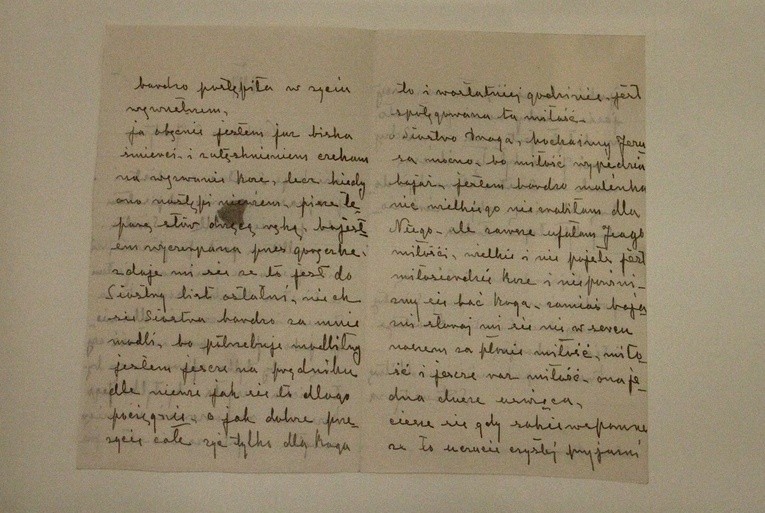 bardzo postąpiła w życiu
wewnetrznem.
ja obęcnie jestem juz biska
śmierci i z utęsknieniem czekam
na wezwanie Boże, lecz kiedy
ono nastąpi niewiem. pisze te
parę słów drżącą ręką, bo jest
em wyczerpana przez gorączkę.
zdaje mi sie ze to jest do
Siostry list ostatni, niech
sie Siostra bardzo za mnie
modli, bo potrzebuje modlitwy
jestem jescze na prądniku
ale niewie jak sie to długo
pociągnie, o jak dobrze prze-
życie całe żyć tylko dla Boga
to i w ostatniej godzinie jest
spotęgowana ta miłość.
Siostro Droga, kochajmy Jezu
sa mocno, bo miłość wypędza
bojaź. jestem bardzo maleńka
nic wielkiego nie zrobiłam dla
Niego. ale zawsze ufałam Jego
miłości, wielkie i nie pojęte jest
miłosierdzie Boże i niepowini-
śmy sie bać Boga. zamias boja
źni starajmi sie nie w sercu
naszem zapłonie miłość, miło-
ść i jescze raz miłość. ona je-
dna dusze uswięca.
ciesze sie gdy sobie wspomne
ze to uczucie czystej przyjazni